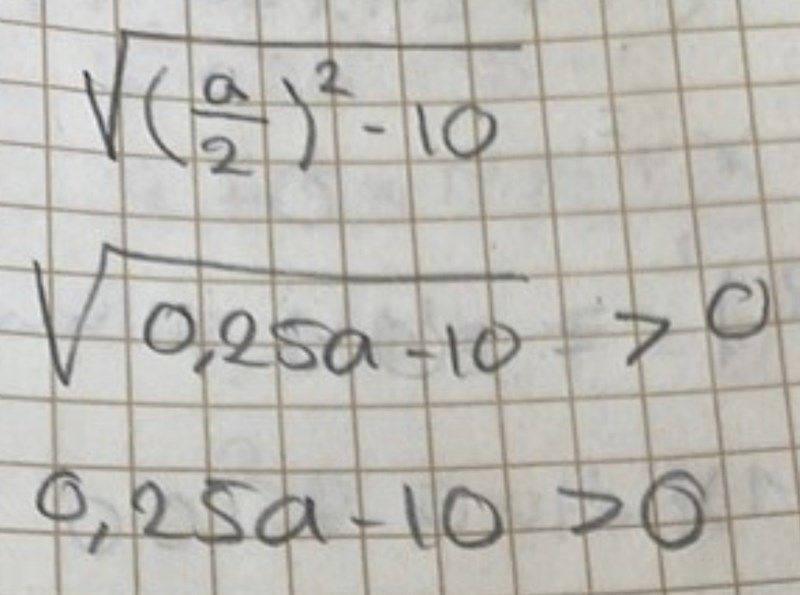 √((a/2)² - 10)
√(0,25a - 10) > 0
0,25a - 10 > 0